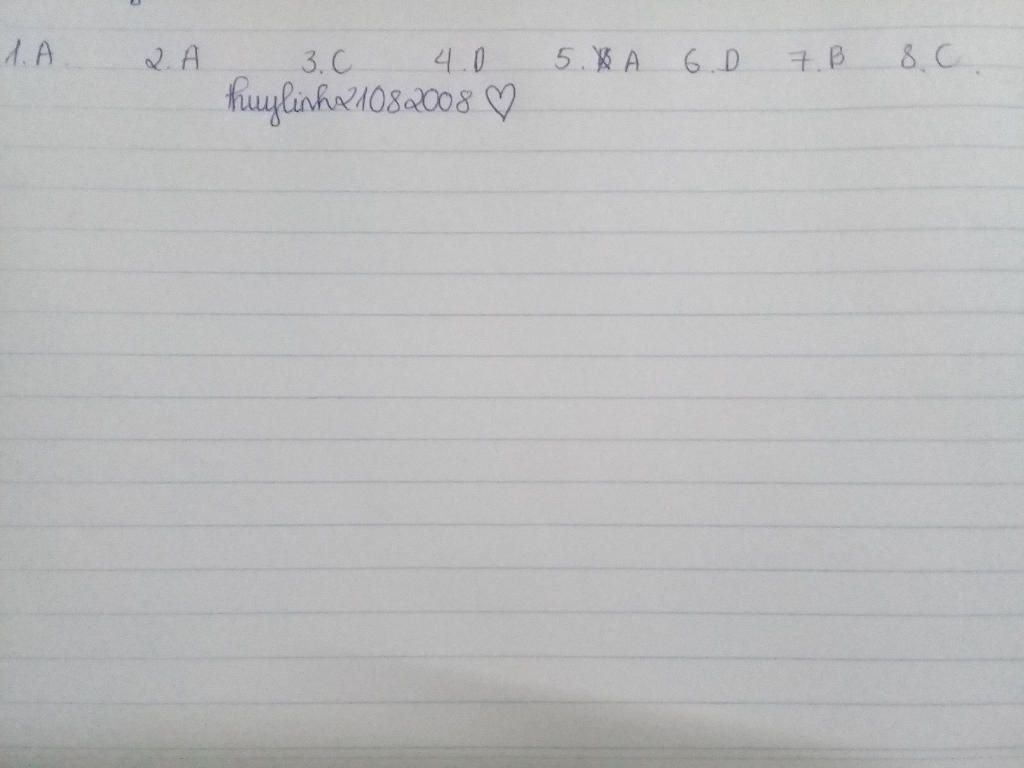 1. A 2. A 3. C 4. D 5. A 6. D 7. B 8. C.
thuylinh21082008 ♡